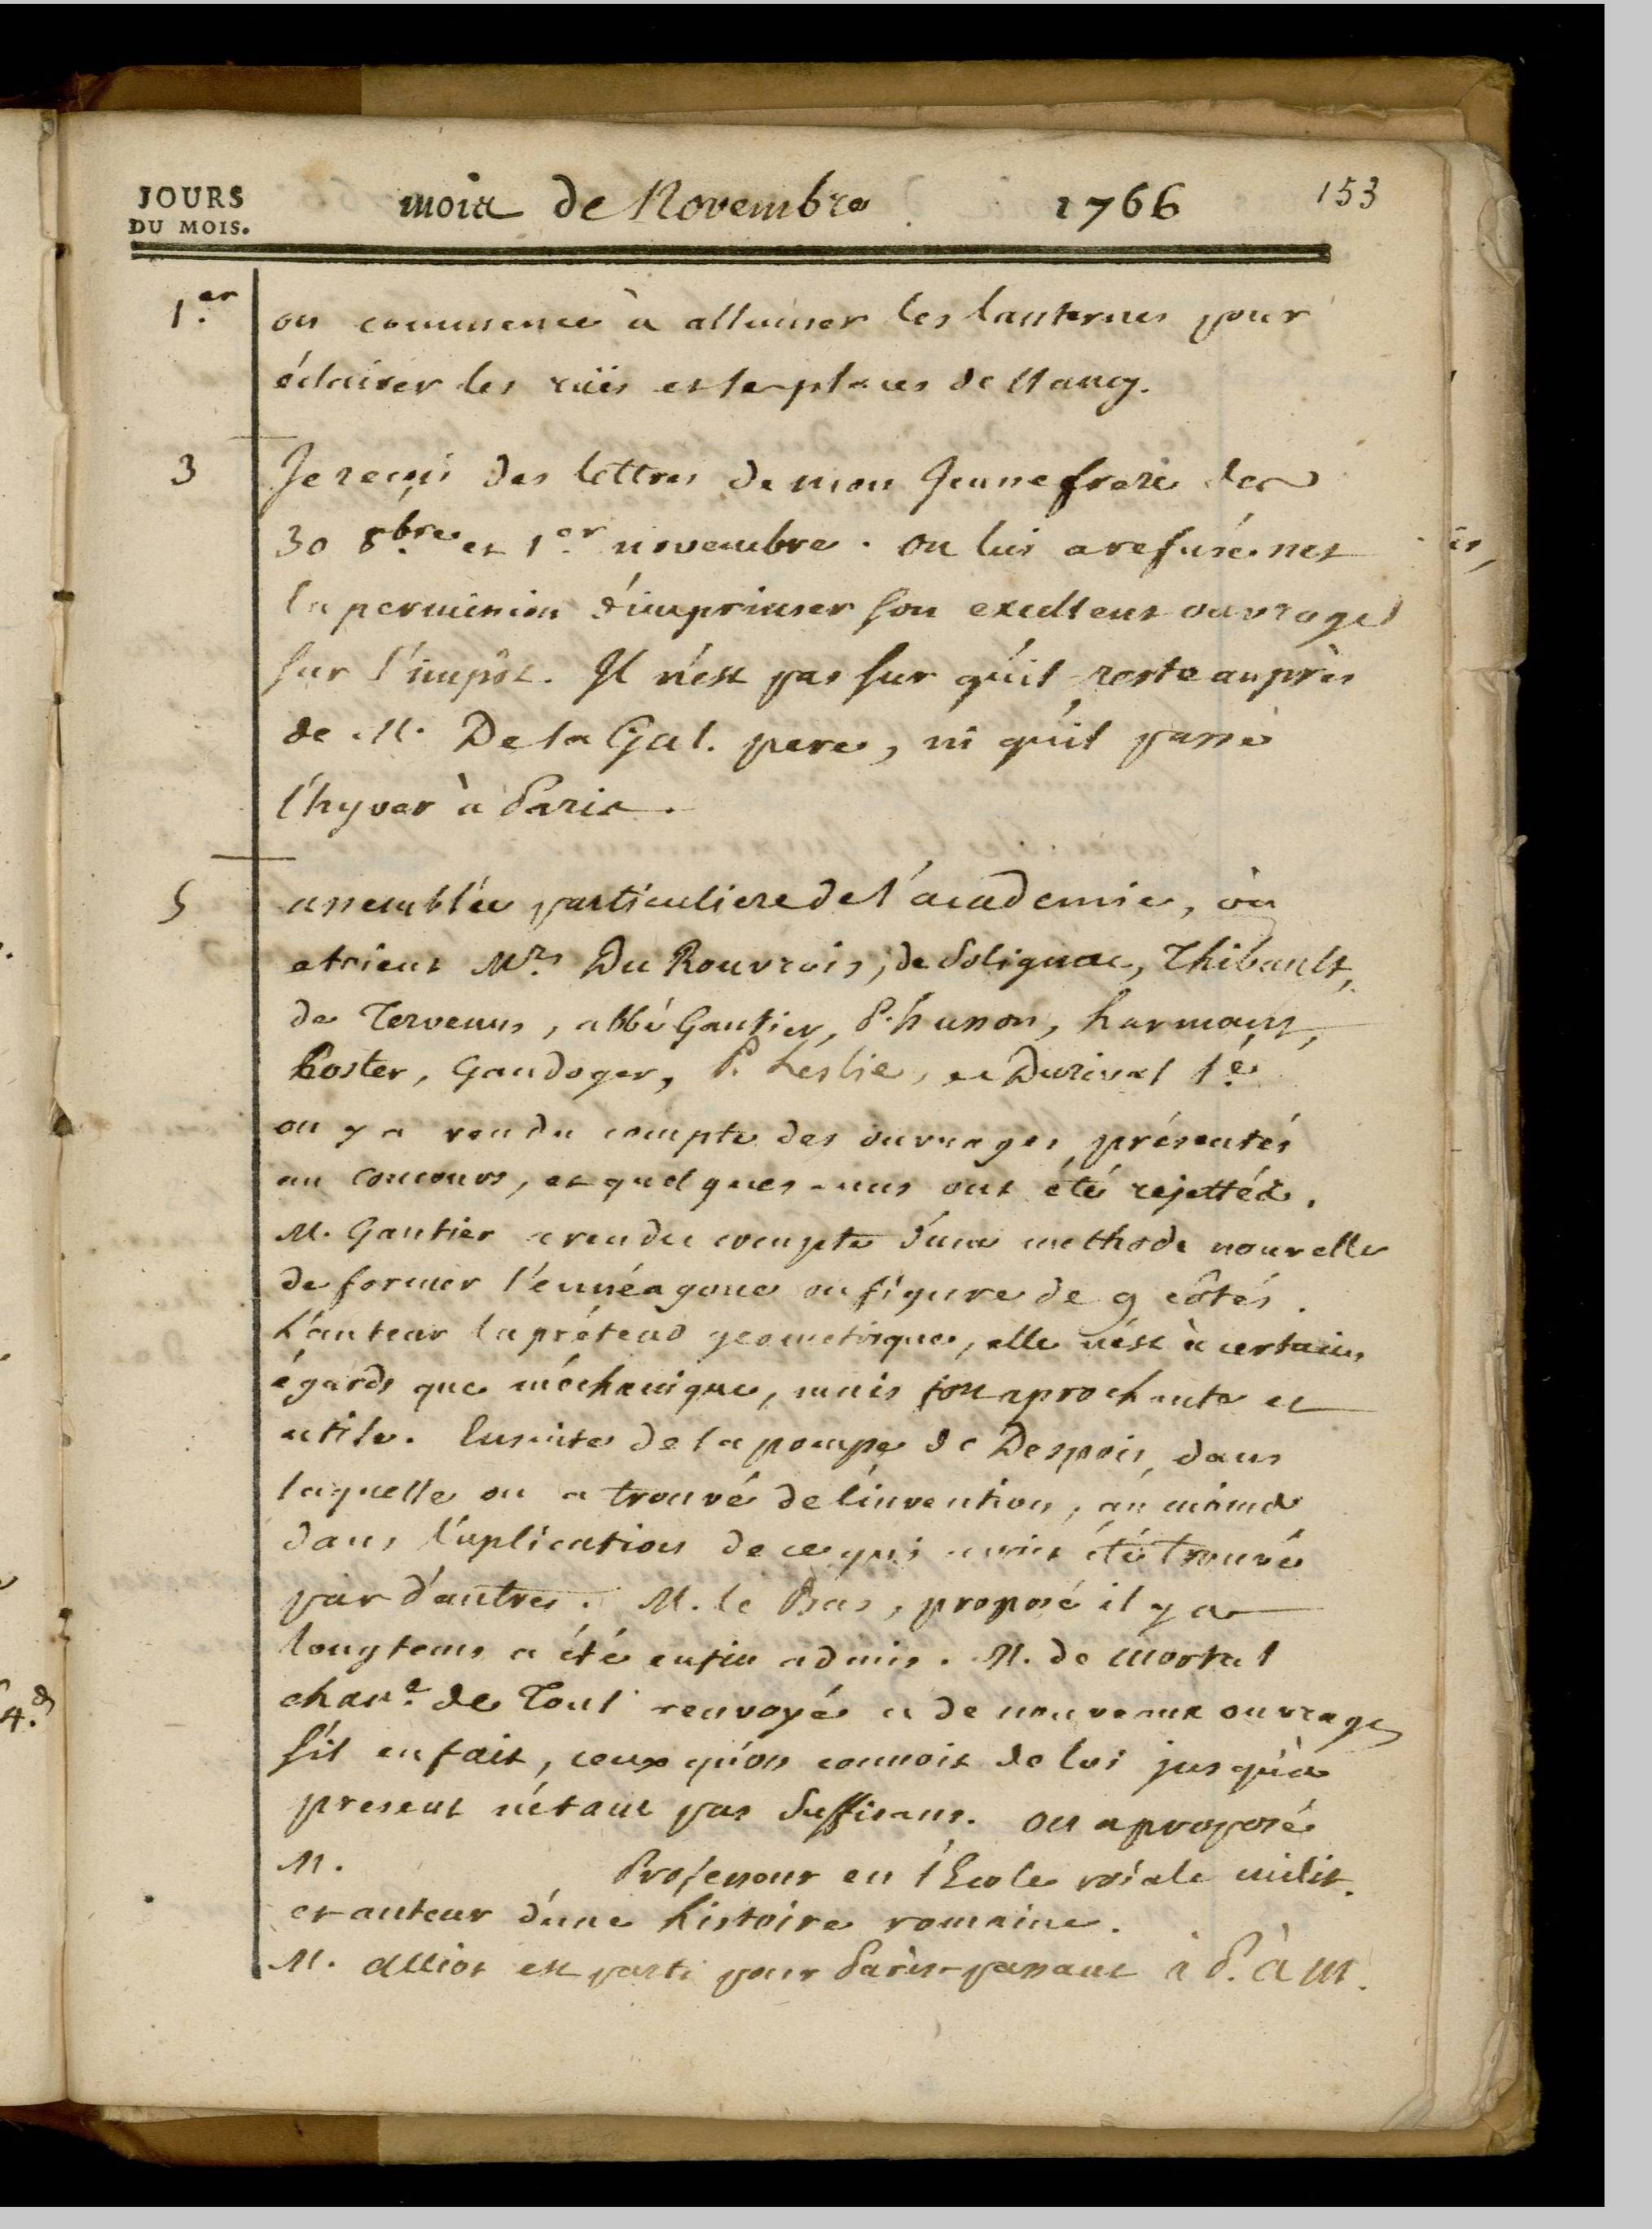 JOURS
DU MOIS.
mois de Novembre 1766 153
1.er on commence à allumer les lanternes pour
éclairer les rües et les places de Nancy.
3 Je reçus des lettres de mon Jeune frere des
30 8.bre et 1.er novembre. on lui a refusé net
la permission d'imprimer son excellent ouvrage
sur l'impôt. Il n'est pas sur qu'il reste auprès
de M. De la Gal. pere, ni qu'il passe
l'hyver à Paris.
5 assemblée particuliere de l'academie, où
etoient Mrs. Du Rouvrois, de Solignac, Thibault,
de Tervenus, abbé Gautier, P. husson, harmant,
Coster, Gandoger, P. Leslie, et Durival l'é.
on y a rendu compte des ouvrages présentés
au concours, et quelques-uns ont été rejettés.
M. Gautier a rendu compte d'une methode nouvelle
de former l'ennéagone ou figure de 9 côtés.
L'auteur la prétend geometrique, elle n'est à certains
égards que méchanique, mais fort aprochante et
utile. Ensuite de la pompe de Despois, dans
laquelle on a trouvé de l'invention, au moins
dans l'aplication de ce qui avoit été trouvé
par d'autres. M. le Bas, proposé il y a
longtems a été enfin admis. M. de Mortal
chan.e de Toul renvoyé a de nouveaux ouvrages
s'il en fait, ceux qu'on connoit de lui jusqu'à
present n'étant pas suffisans. on a proposé
M. Professeur en l'Ecole roiale milit.
et auteur d'une histoire romaine.
M. alliot est parti pour Paris passant à P. à M.